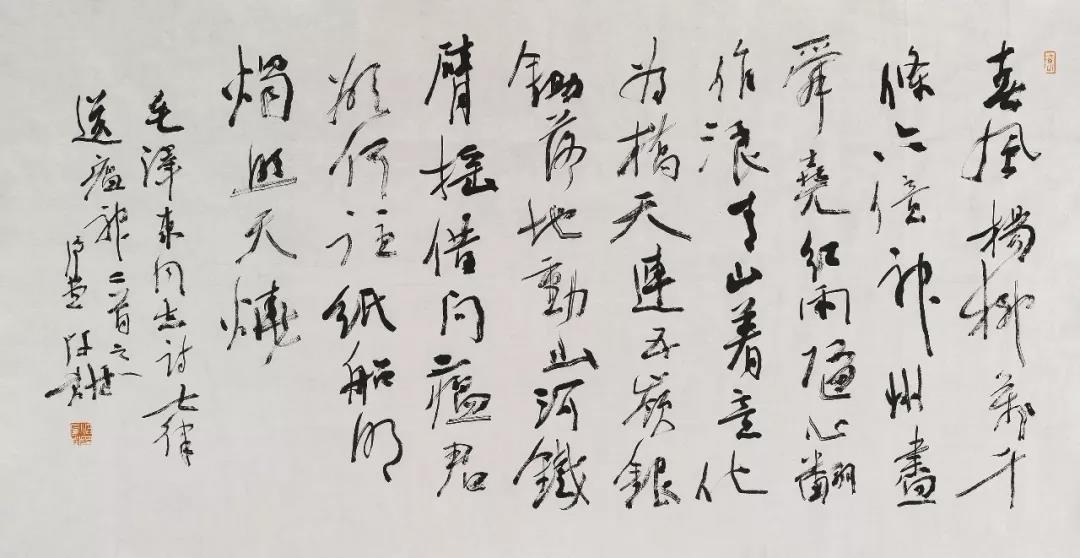 春風楊柳萬千
條六億神州盡
舜堯紅雨隨心翻
作浪青山着意化
为橋天連五嶺銀
鋤落地動山河鐵
臂搖借问瘟君
欲何往纸船明
燭照天燒
毛澤東同志诗七律
送瘟神二首之